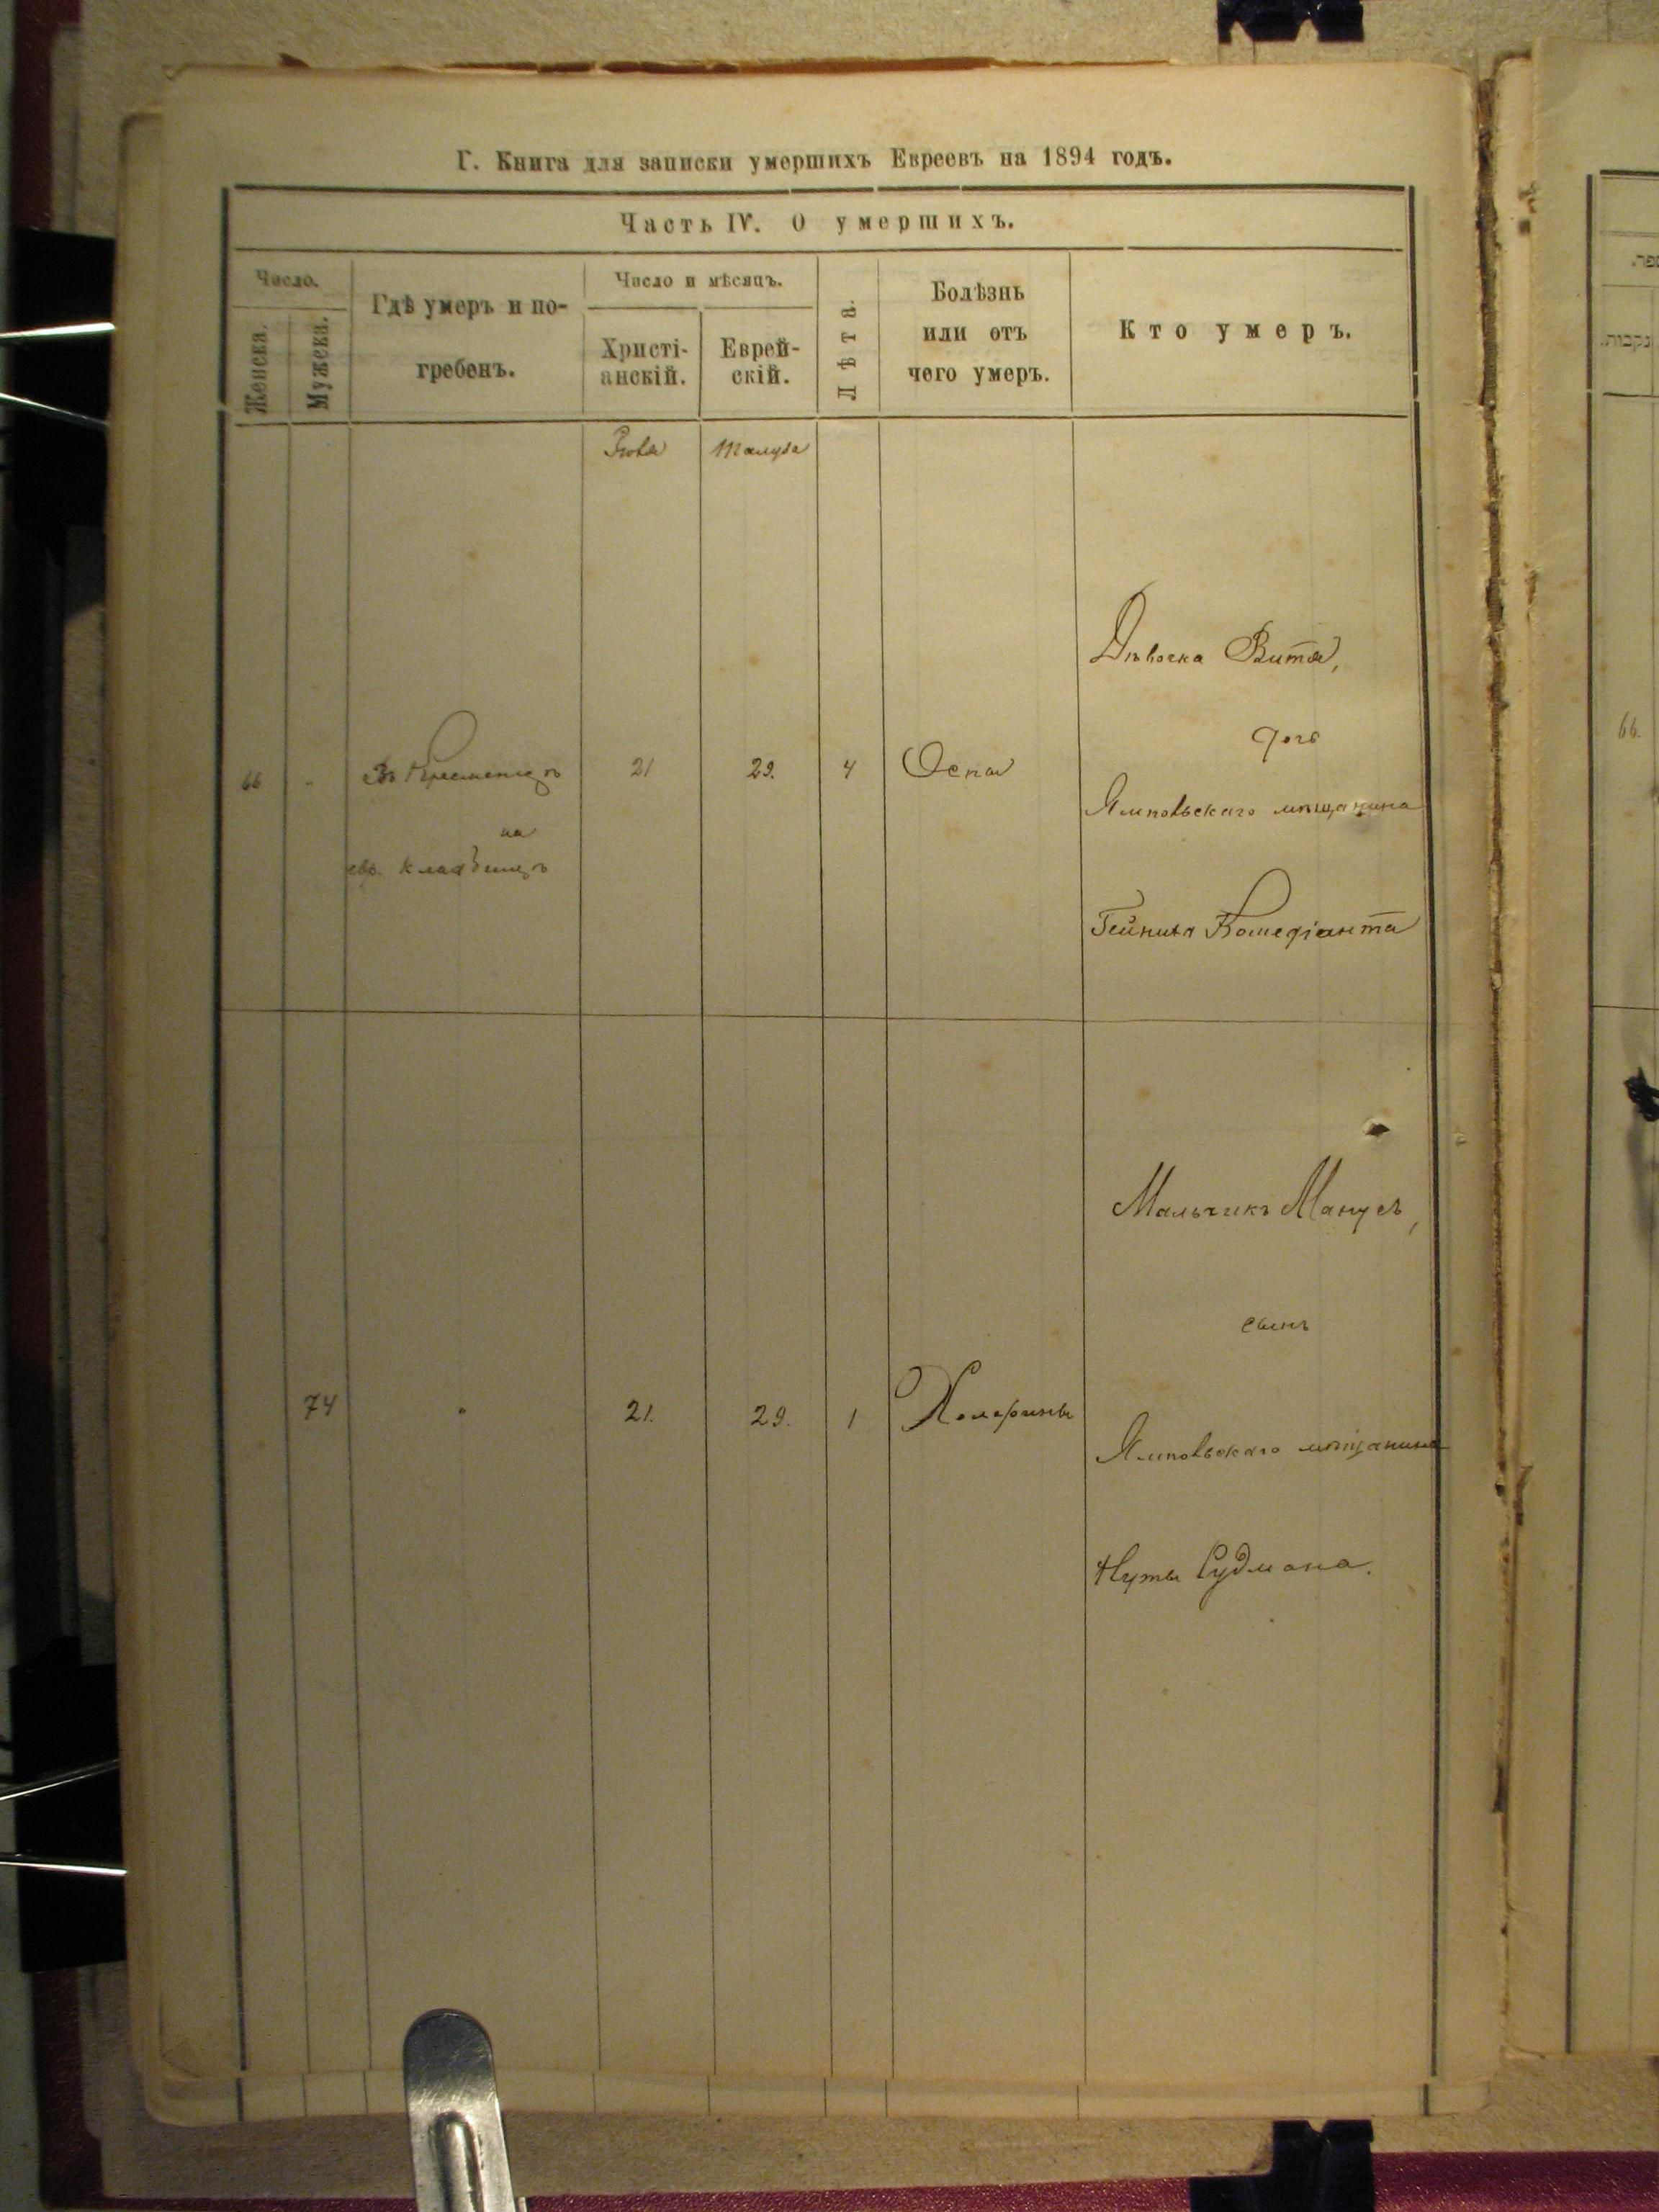 Г. Книга для записки умершихъ Евреевъ на 1894 годъ.
Часть IV. О умершихъ.
Число.
Женска.
Мужска.
Гдѣ умеръ и по-
гребенъ.
Число и мѣсяцъ.
Христі-
анскій.
Еврей-
скій.
Лѣта.
Болѣзнь
или отъ
чего умеръ.
Кто умеръ.
Іюля
Тамуза
Дѣвочка Витя,
дочь
66 Въ Кременцѣ 21 29. 4 Оспа
Ямпольскаго мѣщанина
на
евр. кладбищѣ
Комедіанта
Мальчикъ Манусъ,
сынъ
74 21. 29. 1 Холерины
Ямпольскаго мѣщанина
Нуты Судмана.
66.